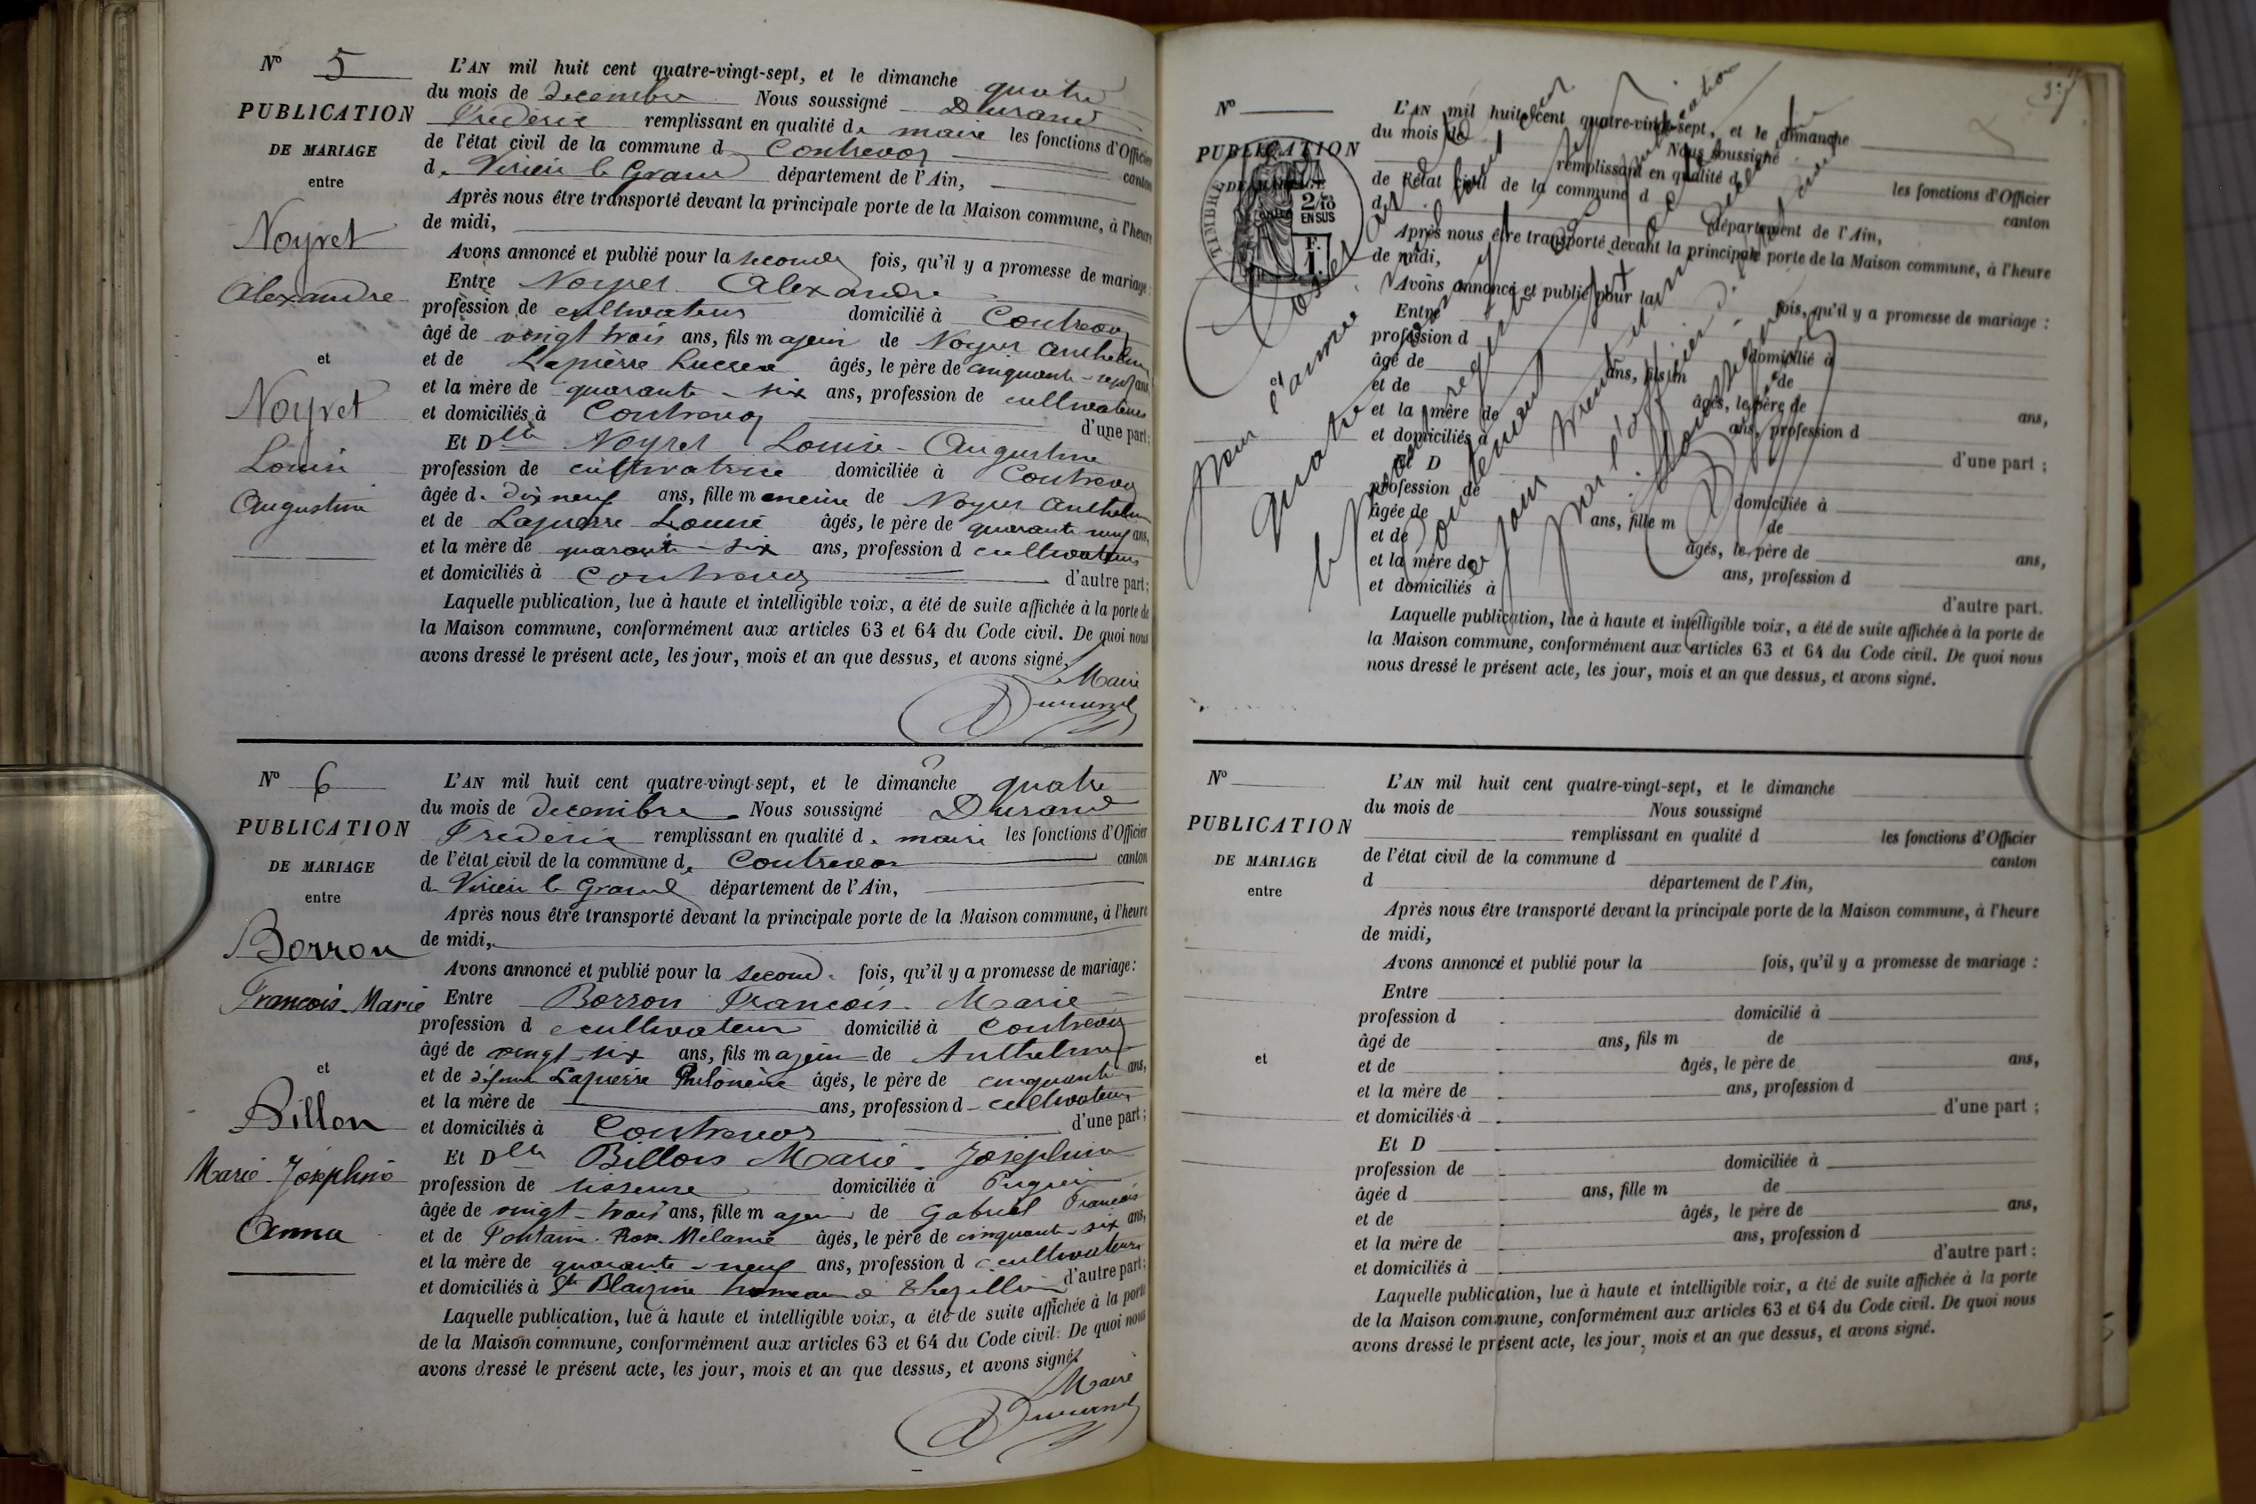 Nº 5
PUBLICATION
DE MARIAGE
entre
Noyret
Alexandre
et
Noyret
Louise
Augustine
L'AN mil huit cent quatre-vingt-sept, et le dimanche quatre
du mois de Decembre Nous soussigné Durand
Frederic remplissant en qualité de maire les fonctions d'Officier
de l'état civil de la commune d Contrevoz canton
d. Virieu le Grand département de l'Ain,
Après nous être transporté devant la principale porte de la Maison commune, à l'heure
de midi,
Avons annoncé et publié pour la seconde fois, qu'il y a promesse de mariage :
Entre Noyret Alexandre
profession de cultivateur domicilié à Contrevoz
âgé de vingt trois ans, fils majeur de Noyret Anthelme
et de Lapierre âgés, le père de cinquante-sept ans
et la mère de quarante-six ans, profession de cultivateurs
et domiciliés à Contrevoz d'une part ;
Et Dlle Noyret Louise-Augustine
profession de cultivatrice domiciliée à Contrevoz
âgée d. dix neuf ans, fille mineure de Noyret Anthelme
et de Lapierre Louise âgés, le père de quarante neuf ans,
et la mère de quarante-six ans, profession d cultivateurs
et domiciliés à Contrevoz d'autre part ;
Laquelle publication, lue à haute et intelligible voix, a été de suite affichée à la porte de
la Maison commune, conformément aux articles 63 et 64 du Code civil. De quoi nous
avons dressé le présent acte, les jour, mois et an que dessus, et avons signé.
Le Maire
Durand
Nº 6
PUBLICATION
DE MARIAGE
entre
Borron
Francois-Marie
et
Billon
Marie-Joséphine
Anna
L'AN mil huit cent quatre-vingt-sept, et le dimanche quatre
du mois de Decembre Nous soussigné Durand
Frederic remplissant en qualité d. maire les fonctions d'Officier
de l'état civil de la commune d. Contrevoz canton
d. Virieu le Grand département de l'Ain,
Après nous être transporté devant la principale porte de la Maison commune, à l'heure
de midi,
Avons annoncé et publié pour la second. fois, qu'il y a promesse de mariage :
Entre Borron Francois-Marie
profession d cultivateur domicilié à Contrevoz
âgé de vingt-six ans, fils majeur de Anthelme
et de défunte Lapierre Philomène âgés, le père de cinquante ans,
et la mère de ans, profession d cultivateur
et domiciliés à Contrevoz d'une part ;
Et Dlle Billon Marie-Josephine
profession de tisseuse domiciliée à Pugieu
âgée de vingt-trois ans, fille majeure de Gabriel Francois
et de Fontaine Rose Mélanie âgés, le père de cinquante-six ans,
et la mère de quarante-neuf ans, profession d cultivateurs
et domiciliés à Ste Blaizine hameau d Thezillieu d'autre part ;
Laquelle publication, lue à haute et intelligible voix, a été de suite affichée à la porte
de la Maison commune, conformément aux articles 63 et 64 du Code civil. De quoi nous
avons dressé le présent acte, les jour, mois et an que dessus, et avons signé.
Le Maire
Durand
Nº
PUBLICATION
DE MARIAGE
TIMBRE
2/10
EN SUS
F.
1.
et
L'AN mil huit cent quatre-vingt-sept, et le dimanche
du mois de Nous soussigné
remplissant en qualité d les fonctions d'Officier
de l'état civil de la commune d canton
d département de l'Ain,
Après nous être transporté devant la principale porte de la Maison commune, à l'heure
de midi,
Avons annoncé et publié pour la fois, qu'il y a promesse de mariage :
Entre
profession d domicilié à
âgé de ans, fils m de
et de âgés, le père de ans,
et la mère de ans, profession d
et domiciliés à d'une part ;
Et D
profession de domiciliée à
âgée de ans, fille m de
et de âgés, le père de ans,
et la mère de ans, profession d
et domiciliés à d'autre part.
Laquelle publication, lue à haute et intelligible voix, a été de suite affichée à la porte de
la Maison commune, conformément aux articles 63 et 64 du Code civil. De quoi nous
nous dressé le présent acte, les jour, mois et an que dessus, et avons signé.
Nº
PUBLICATION
DE MARIAGE
entre
et
L'AN mil huit cent quatre-vingt-sept, et le dimanche
du mois de Nous soussigné
remplissant en qualité d les fonctions d'Officier
de l'état civil de la commune d canton
d département de l'Ain,
Après nous être transporté devant la principale porte de la Maison commune, à l'heure
de midi,
Avons annoncé et publié pour la fois, qu'il y a promesse de mariage :
Entre
profession d domicilié à
âgé de ans, fils m de
et de âgés, le père de ans,
et la mère de ans, profession d
et domiciliés à d'une part ;
Et D
profession de domiciliée à
âgée d ans, fille m de
et de âgés, le père de ans,
et la mère de ans, profession d
et domiciliés à d'autre part ;
Laquelle publication, lue à haute et intelligible voix, a été de suite affichée à la porte
de la Maison commune, conformément aux articles 63 et 64 du Code civil. De quoi nous
avons dressé le présent acte, les jour, mois et an que dessus, et avons signé.